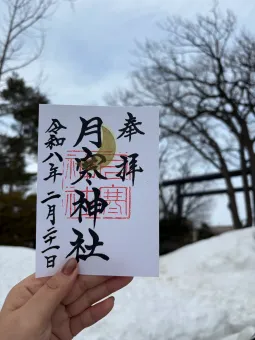 奉拝
月寒神社
令和八年二月二十一日